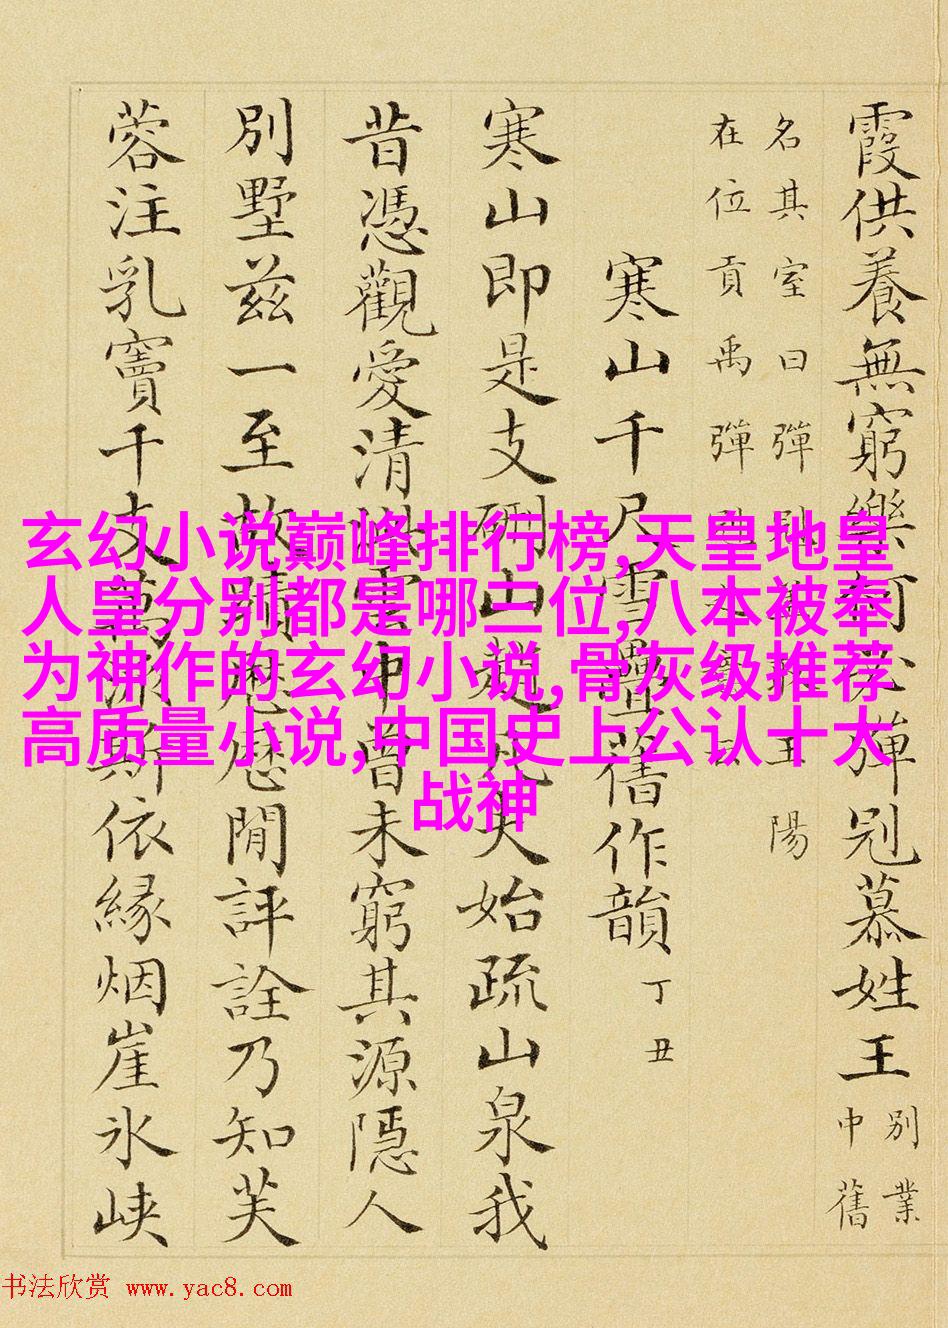 霞供養無窮樂何必彈冠慕姓王
別業
中舊
名其室曰彈王陽
在位貢禹彈
寒山千尺雪疊舊作韻 丁丑
寒山即是支硎山趙凡夫始疏山泉我
昔憑觀愛清雲中曾未窮其源隱人
別墅茲一至故蹟歷歷閒評詮乃知芙
蓉注乳竇千支萬派斯依緣烟崖氷峽
玄幻小说巅峰排行榜,天皇地皇
人皇分别都是哪三位,八本被奉
为神作的玄幻小说,骨灰级推荐
高质量小说,中国史上公认十大
战神
书法欣赏 www.yac8.com